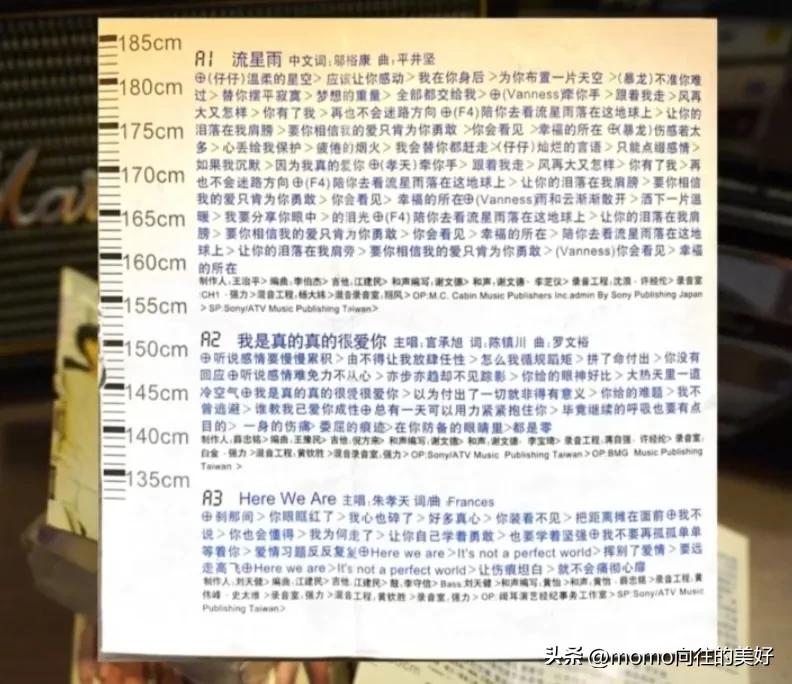 185cm
180cm
175cm
170cm
165cm
160cm
155cm
150cm
145cm
140cm
135cm
A1 流星雨 中文词:邬裕康 曲:平井坚
⊕(仔仔)温柔的星空>应该让你感动>我在你身后>为你布置一片天空>(暴龙)不准你难
过>替你摆平寂寞>梦想的重量>全部都交给我>⊕(Vanness)牵你手>跟着我走>风再
大又怎样>你有了我>再也不会迷路方向⊕(F4)陪你去看流星雨落在这地球上>让你的
泪落在我肩膀>要你相信我的爱只肯为你勇敢>你会看见>幸福的所在⊕(暴龙)伤感若太
多>心丢给我保护>疲倦的烟火>我会替你都赶走>(仔仔)灿烂的言语>只能点缀感情>
如果我沉默>因为我真的爱你⊕(孝天)牵你手>跟着我走>风再大又怎样>你有了我>再
也不会迷路方向⊕(F4)陪你去看流星雨落在这地球上>让你的泪落在我肩膀>要你相信
我的爱只肯为你勇敢>你会看见>幸福的所在⊕(Vanness)雨和云渐渐散开>洒下一片温
暖>我要分享你眼中>的泪光⊕(F4)陪你去看流星雨落在这地球上>让你的泪落在我肩
膀>要你相信我的爱只肯为你勇敢>你会看见>幸福的所在>陪你去看流星雨落在这地
球上>让你的泪落在我肩旁>要你相信我的爱只肯为你勇敢>(Vanness)你会看见>幸福
的所在
制作人:王治平>编曲:李伯杰>吉他:江建民>和声编写:谢文德>和声:谢文德·李芝仪>录音工程:沈浪·许经伦>录音室
:CH1·强力>混音工程:杨大纬>混音录音室:翔风>OP:M.C. Cabin Music Publishers Inc.admin By Sony Publishing Japan
>SP:Sony/ATV Music Publishing Taiwan>
A2 我是真的真的很爱你 主唱:言承旭 词:陈镇川 曲:罗文裕
⊕听说感情要慢慢累积>由不得让我放肆任性>怎么我循规蹈矩>拼了命付出>你没有
回应⊕听说感情难免力不从心>亦步亦趋却不见踪影>你给的眼神好比>大热天里一道
冷空气⊕我是真的真的很爱很爱你>以为付出了一切就非得有意义>你给的难题>我不
曾逃避>谁教我已爱你成性⊕总有一天可以用力紧紧抱住你>毕竟继续的呼吸也要有点
目的>一身的伤痛>委屈的痕迹>在你防备的眼睛里>都是零
制作人:薛忠铭>编曲:王豫民>吉他:倪方来>和声编写:谢文德>和声:谢文德·李宝琦>录音工程:蒋自强·许经纶>录音室:
白金·强力>混音工程:黄钦胜>混音录音室:强力>OP:Sony/ATV Music Publishing Taiwan>OP:BMG Music Publishing
Taiwan>
A3 Here We Are 主唱:朱孝天 词/曲:Frances
⊕刹那间>你眼眶红了>我心也碎了>好多真心>你装看不见>把距离摊在面前⊕我不
说>你也会懂得>我为何走了>让你自己学着勇敢>也要学着坚强⊕我不要再孤孤单单
等着你>爱情习题反反复复⊕Here we are>It's not a perfect world>挥别了爱情>要远
走高飞⊕Here we are>It's not a perfect world>让伤痕坦白>就不会痛彻心扉
制作人:刘天健>编曲:江建民>吉他:江建民>鼓:李守信>Bass:刘天健>和声编写:黄怡>和声:黄怡·薛忠铭>录音工程:黄
伟峰·史太维>录音室:强力>混音工程:黄钦胜>录音室:强力>OP:阔耳演艺经纪事务工作室>SP:Sony/ATV Music
Publishing Taiwan>
头条 @momo向往的美好